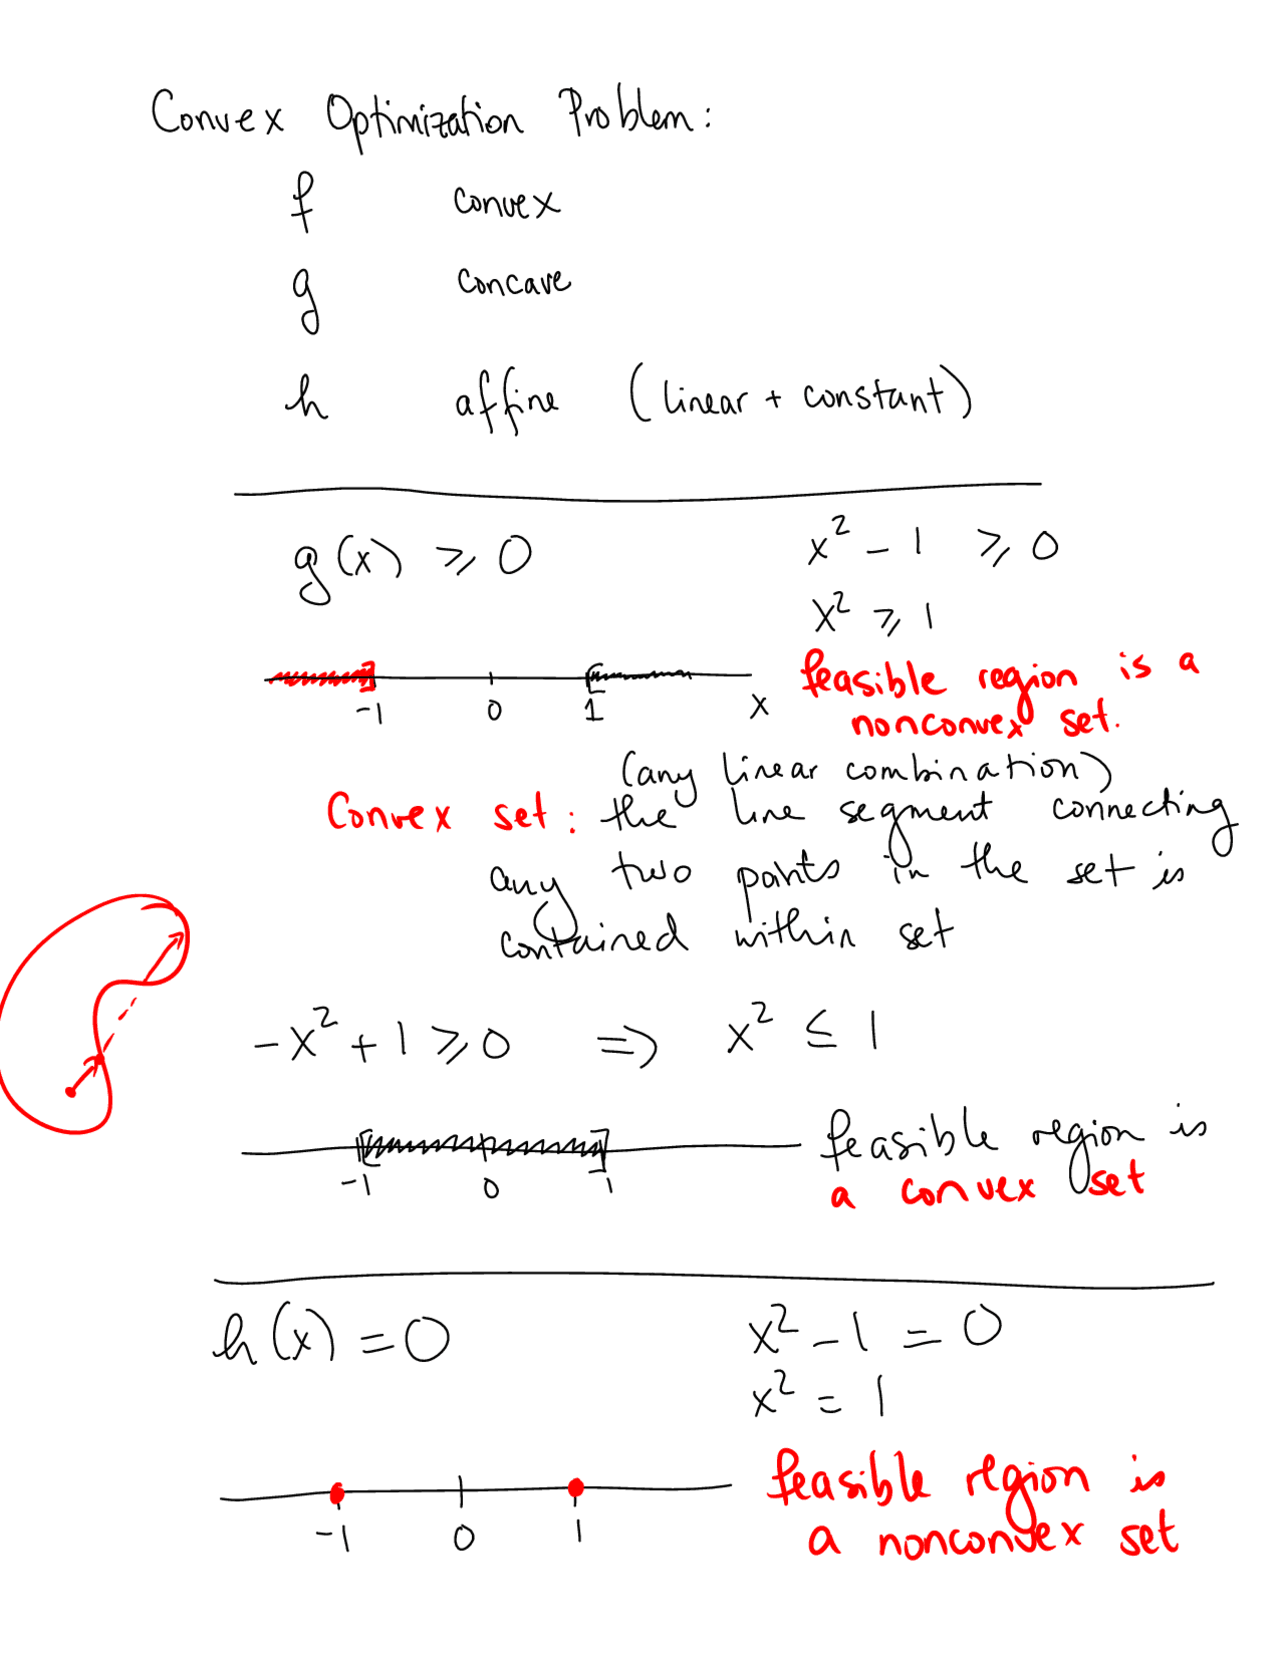 Convex Optimization Problem:
f convex
g concave
h affine (linear + constant)
g(x) ⩾ 0
x² - 1 ⩾ 0
x² ⩾ 1
-1 0 1 x
feasible region is a
nonconvex set.
(any linear combination)
Convex set: the line segment connecting
any two points in the set is
contained within set
-x² + 1 ⩾ 0 ⇒ x² ≤ 1
-1 0 1
feasible region is
a convex set
h(x) = 0
x² - 1 = 0
x² = 1
-1 0 1
feasible region is
a nonconvex set